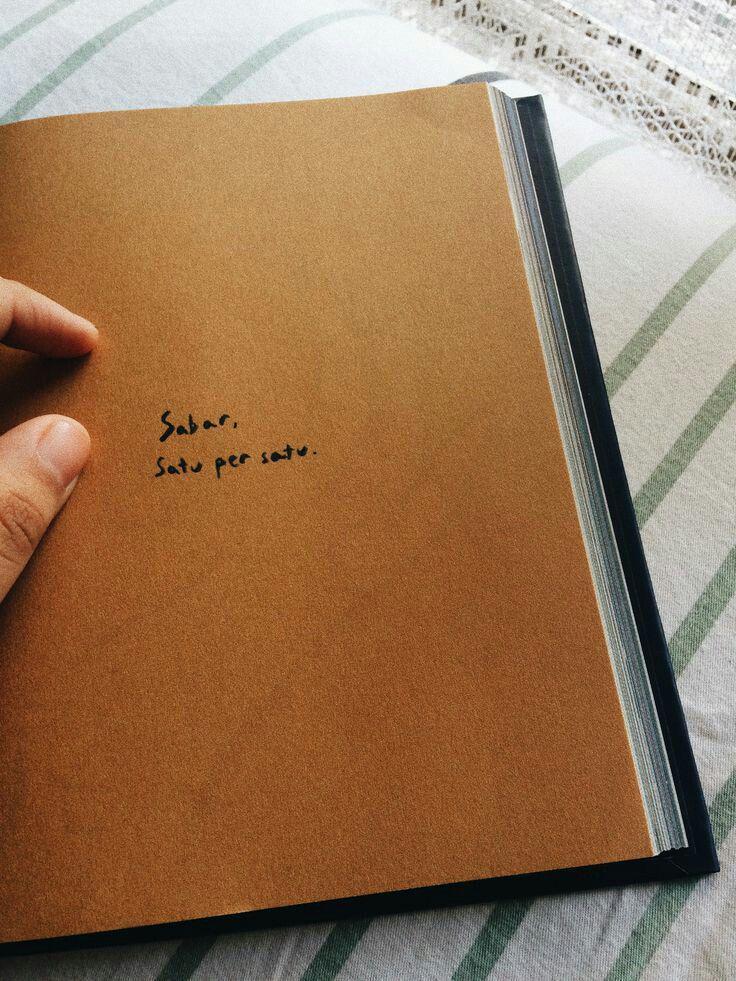 Sabar,
satu per satu.